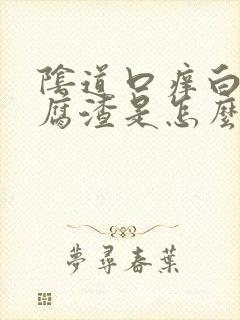 陰道口痒白
腐渣是怎麼
夢尋春葉